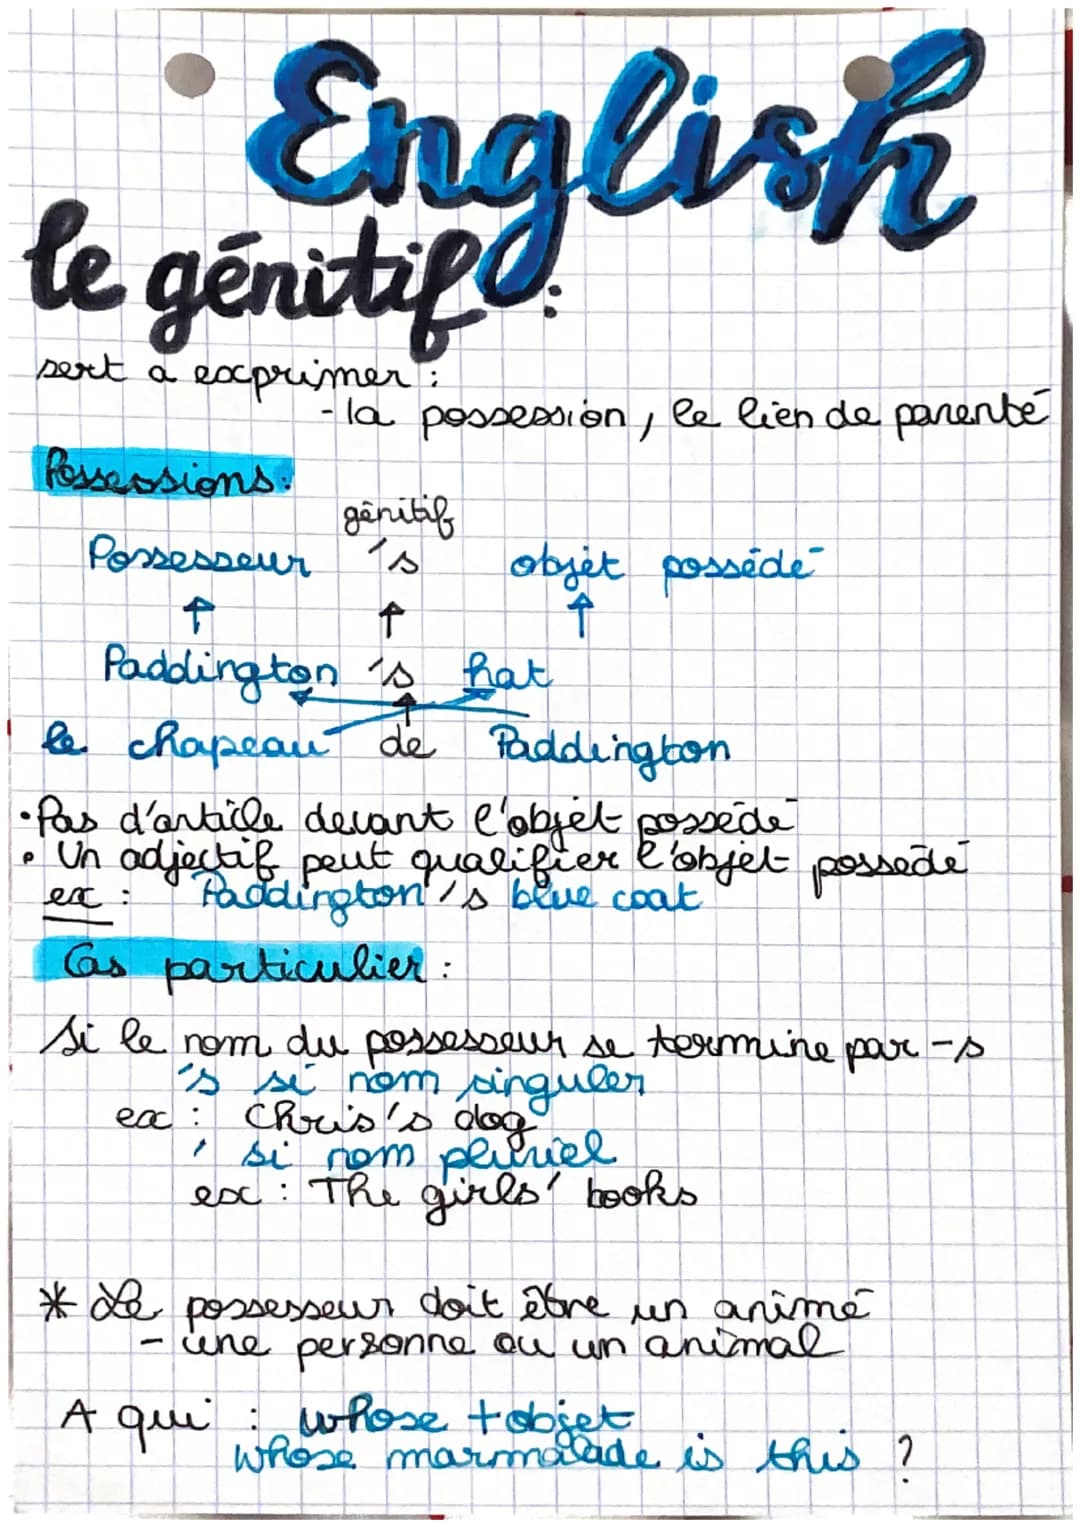 English
le génitif :
sert a exprimer :
- la possession, le lien de parenté
Possessions:
génitif
Possesseur 's objet possédé
Paddington 's hat
le chapeau de Paddington
• Pas d'article devant l'objet possédé
• Un adjectif peut qualifier l'objet possedé
ex : Paddington's blue coat
Cas particulier :
Si le nom du possesseur se termine par -s
's si nom singuler
ex : Chris's dog
' si nom pluriel
ex : The girls' books
* Le possesseur doit être un animé
- une personne ou un animal
A qui : whose + objet
Whose marmalade is this ?